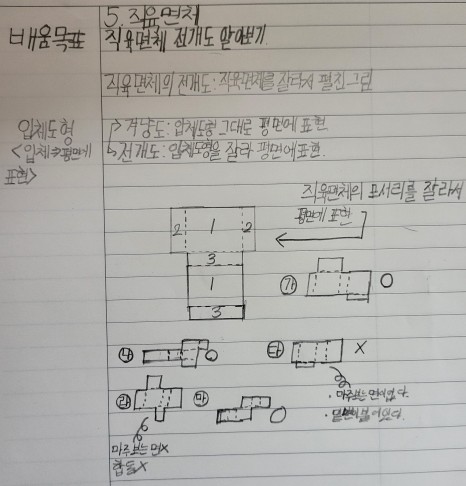 5. 직육면체
배움목표
직육면체 전개도 알아보기
직육면체의 전개도: 직육면체를 잘라서 펼친 그림
입체도형
<입체→평면에
표현>
겨냥도: 입체도형 그대로 평면에 표현
전개도: 입체도형을 잘라 평면에 표현.
직육면체의 모서리를 잘라서
평면에 표현
2 1 2
3
1
3
가 O
나 O
다 X
라
마 O
· 마주보는 면이 없다.
마주보는 면X
합동X